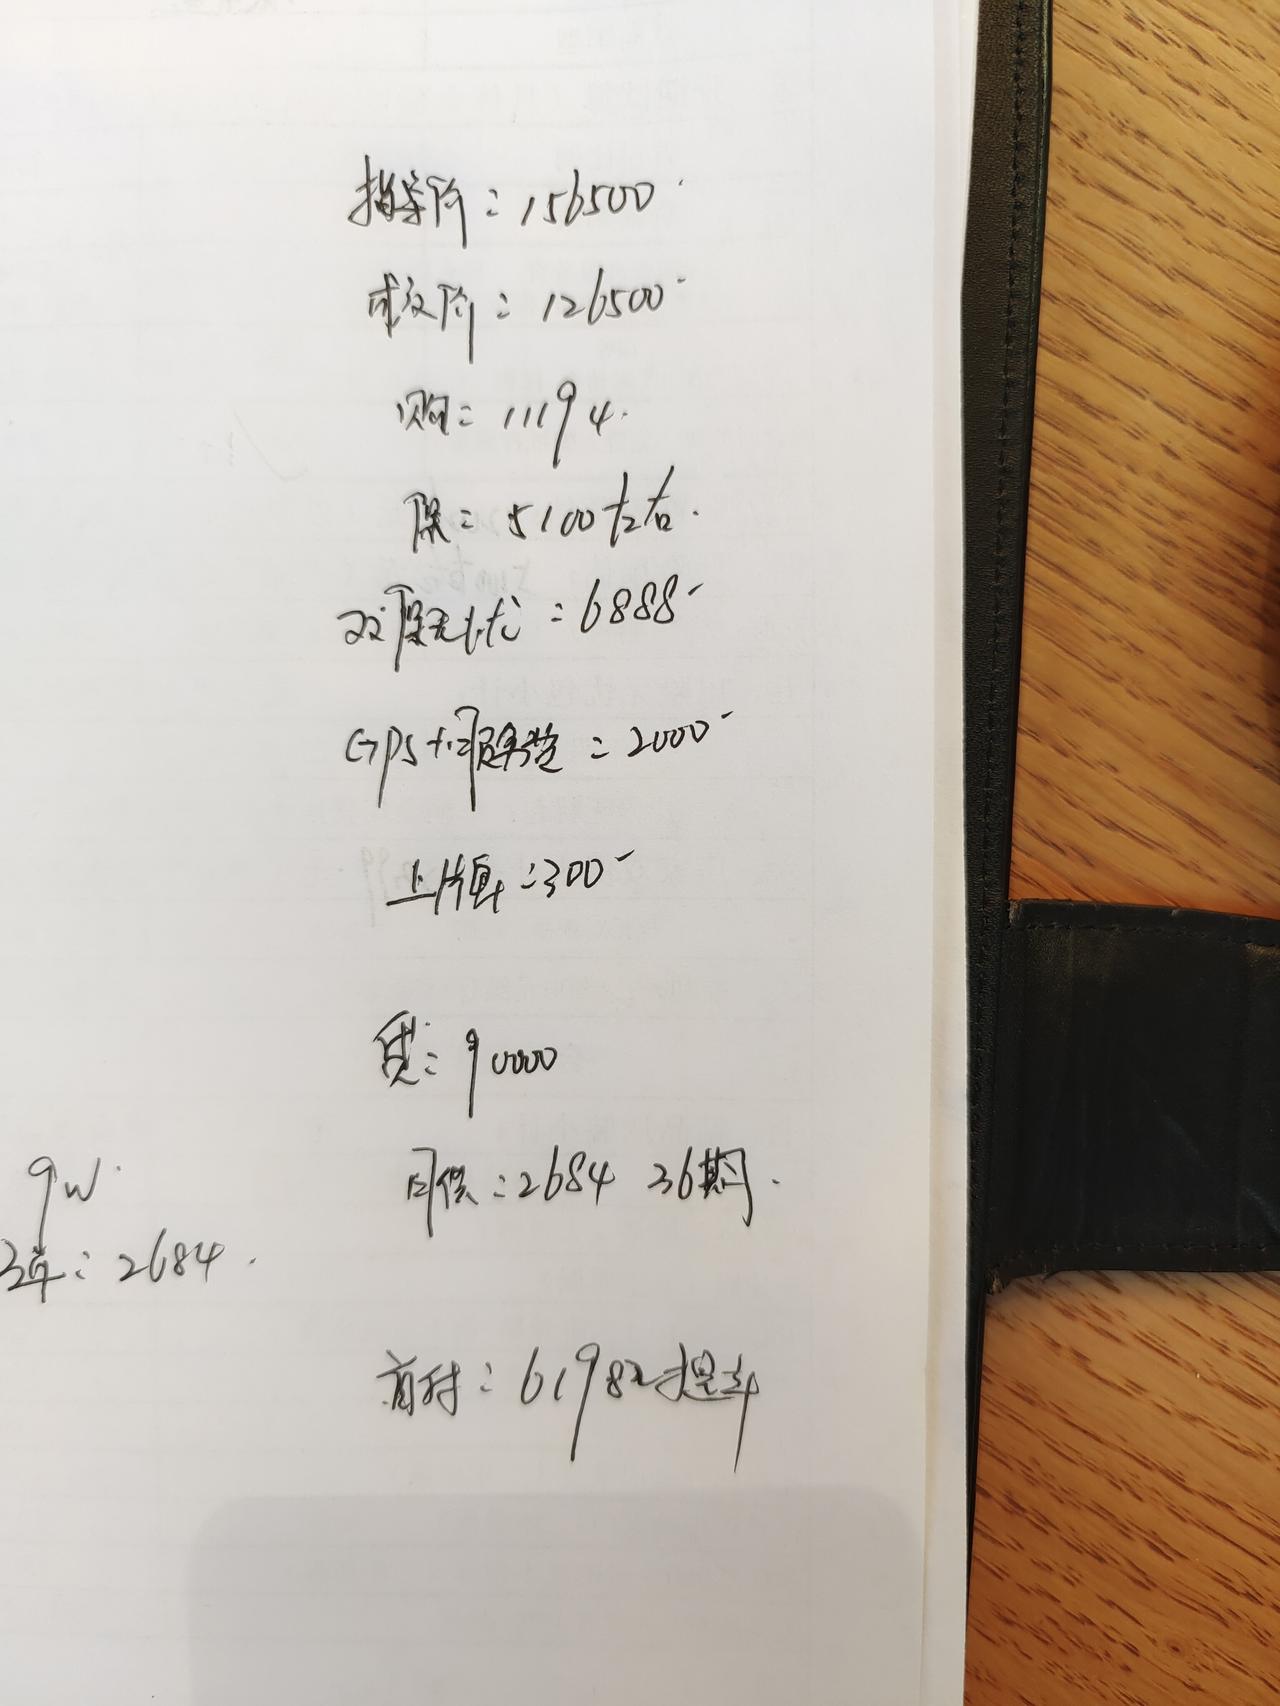 指导价：156500
成交价：126500
购：11194
保：5100左右.
双保无忧：6888
GPS+解除
上牌：300
贷：90000
月供：2684 36期.
9W.
3年：2684.
首付：61982提车